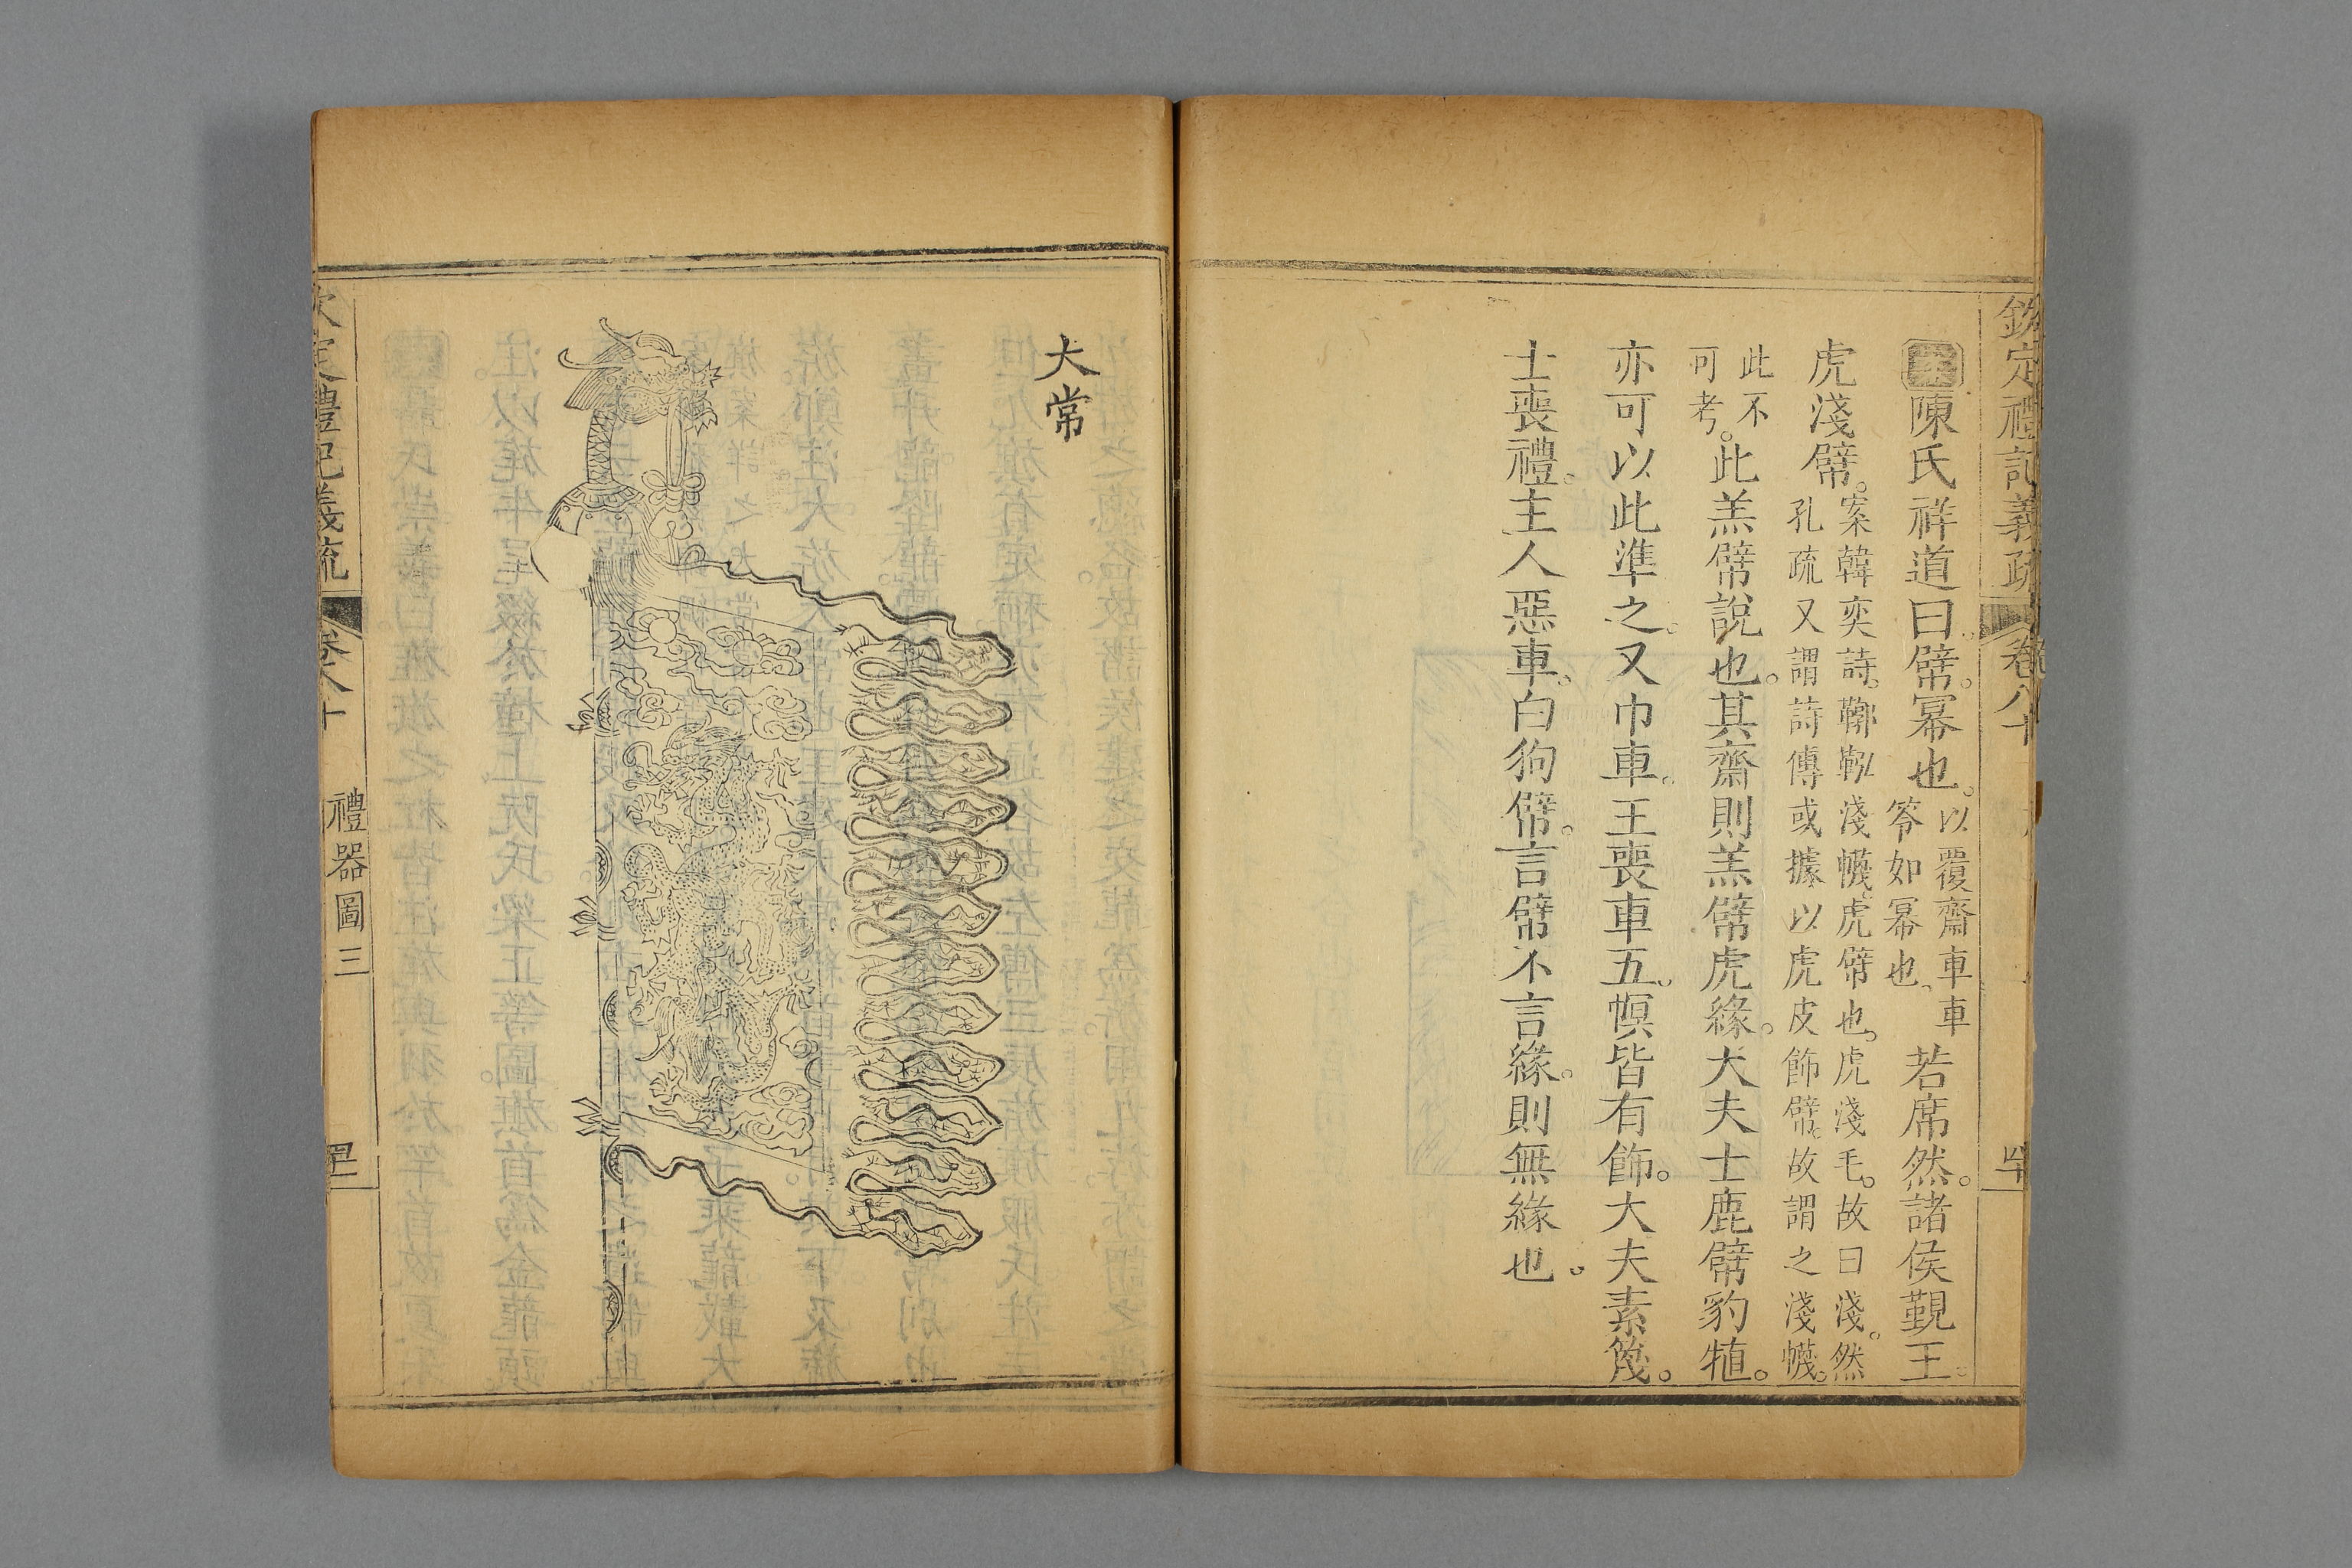 欽定禮記義疏 卷八十
陳氏祥道曰幦。冪也。以覆齋車車笭如冪也。若席然。諸侯覲王。
虎淺幦。案韓奕詩。鞹鞃淺幭。虎幦也。虎淺毛。故曰淺。然孔疏又謂詩傳或據以虎皮飾幦。故謂之淺幭。
此不可考。此羔幦說也。其齋則羔幦虎緣。大夫士鹿幦豹犆。
亦可以此準之。又巾車。王喪車五。幎皆有飾。大夫素簚。
士喪禮。主人惡車。白狗幦。言幦不言緣。則無緣也。
大常
欽定禮記義疏 卷八十 禮器圖三